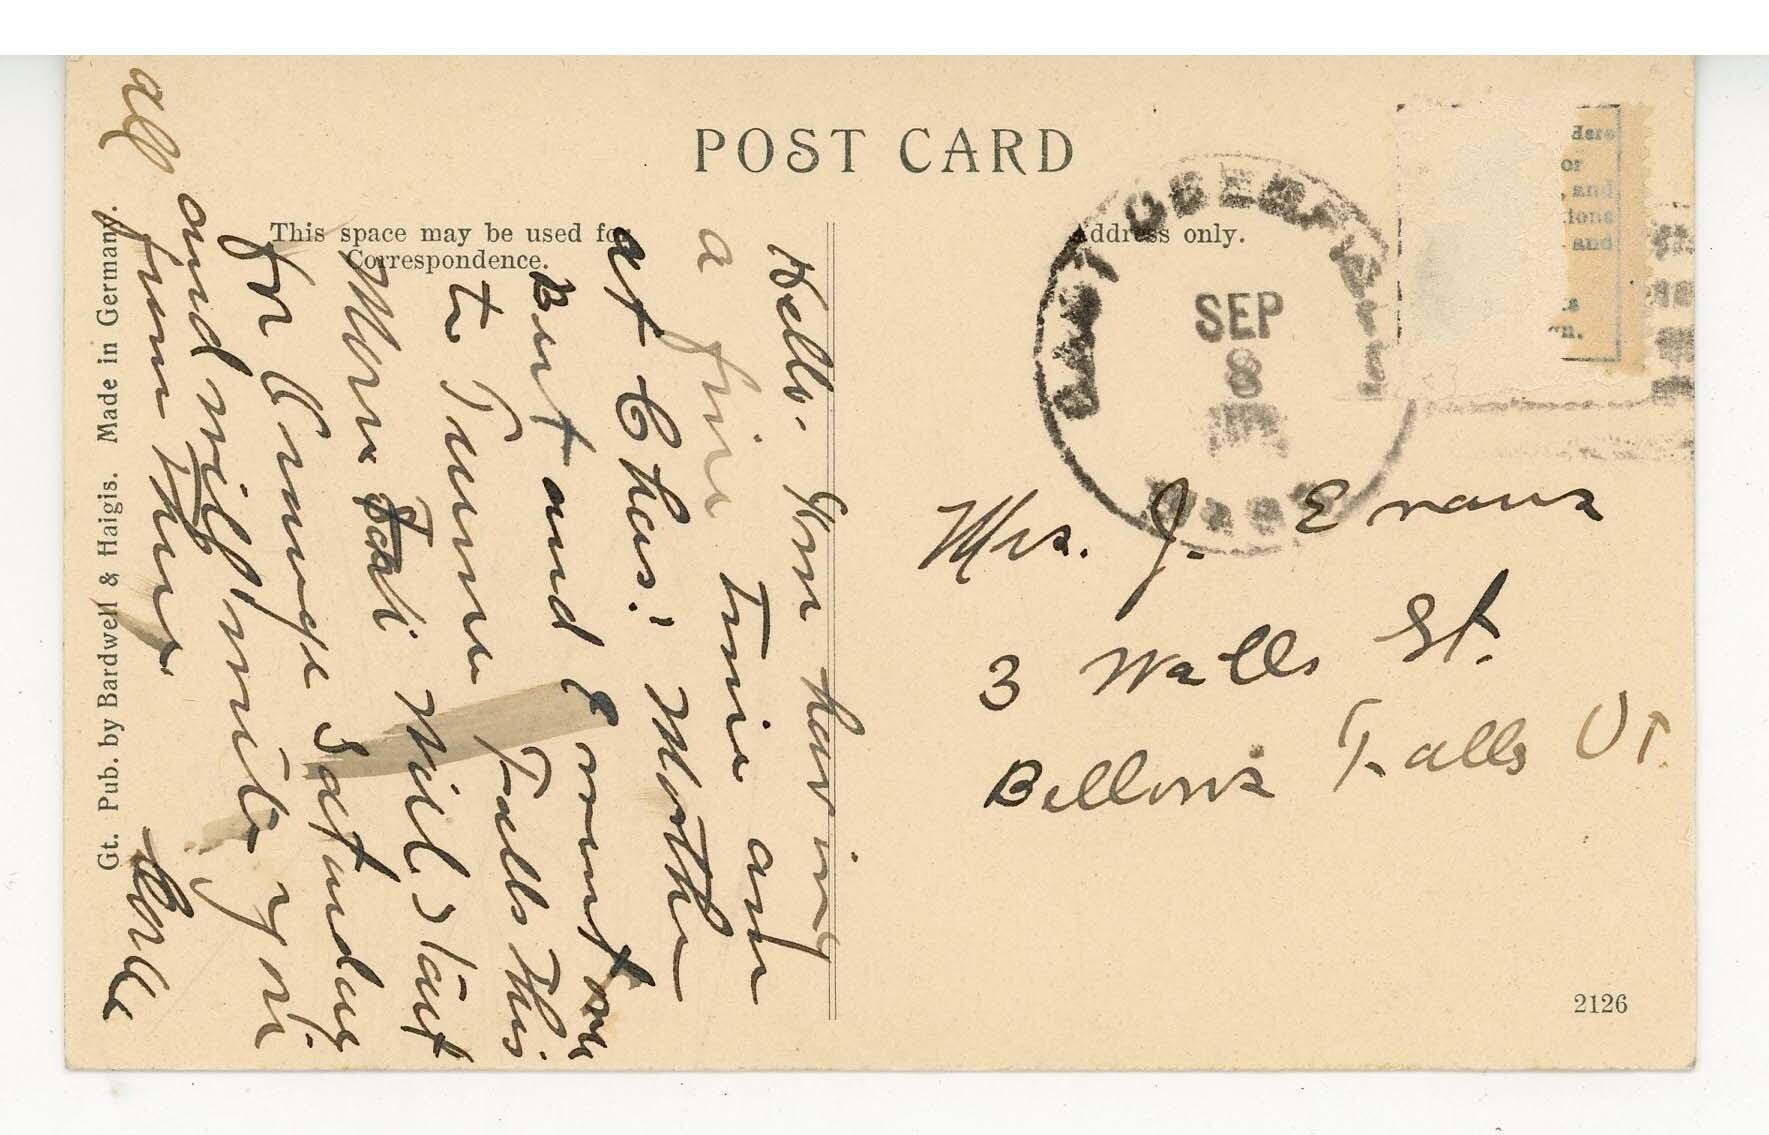 POST CARD
This space may be used for
Correspondence.
Address only.
SEP
8
MASS
Mrs. J. Evans
3 Wells St.
Bellows Falls Vt.
Hello. Am having
a fine Time am
at Chas. Mother
Bert and I went
to Turners Falls This
Morn Will Start
for Orange Saturday
and will write you
from There
all
Gt. Pub. by Bardwell & Haigis. Made in Germany.
2126